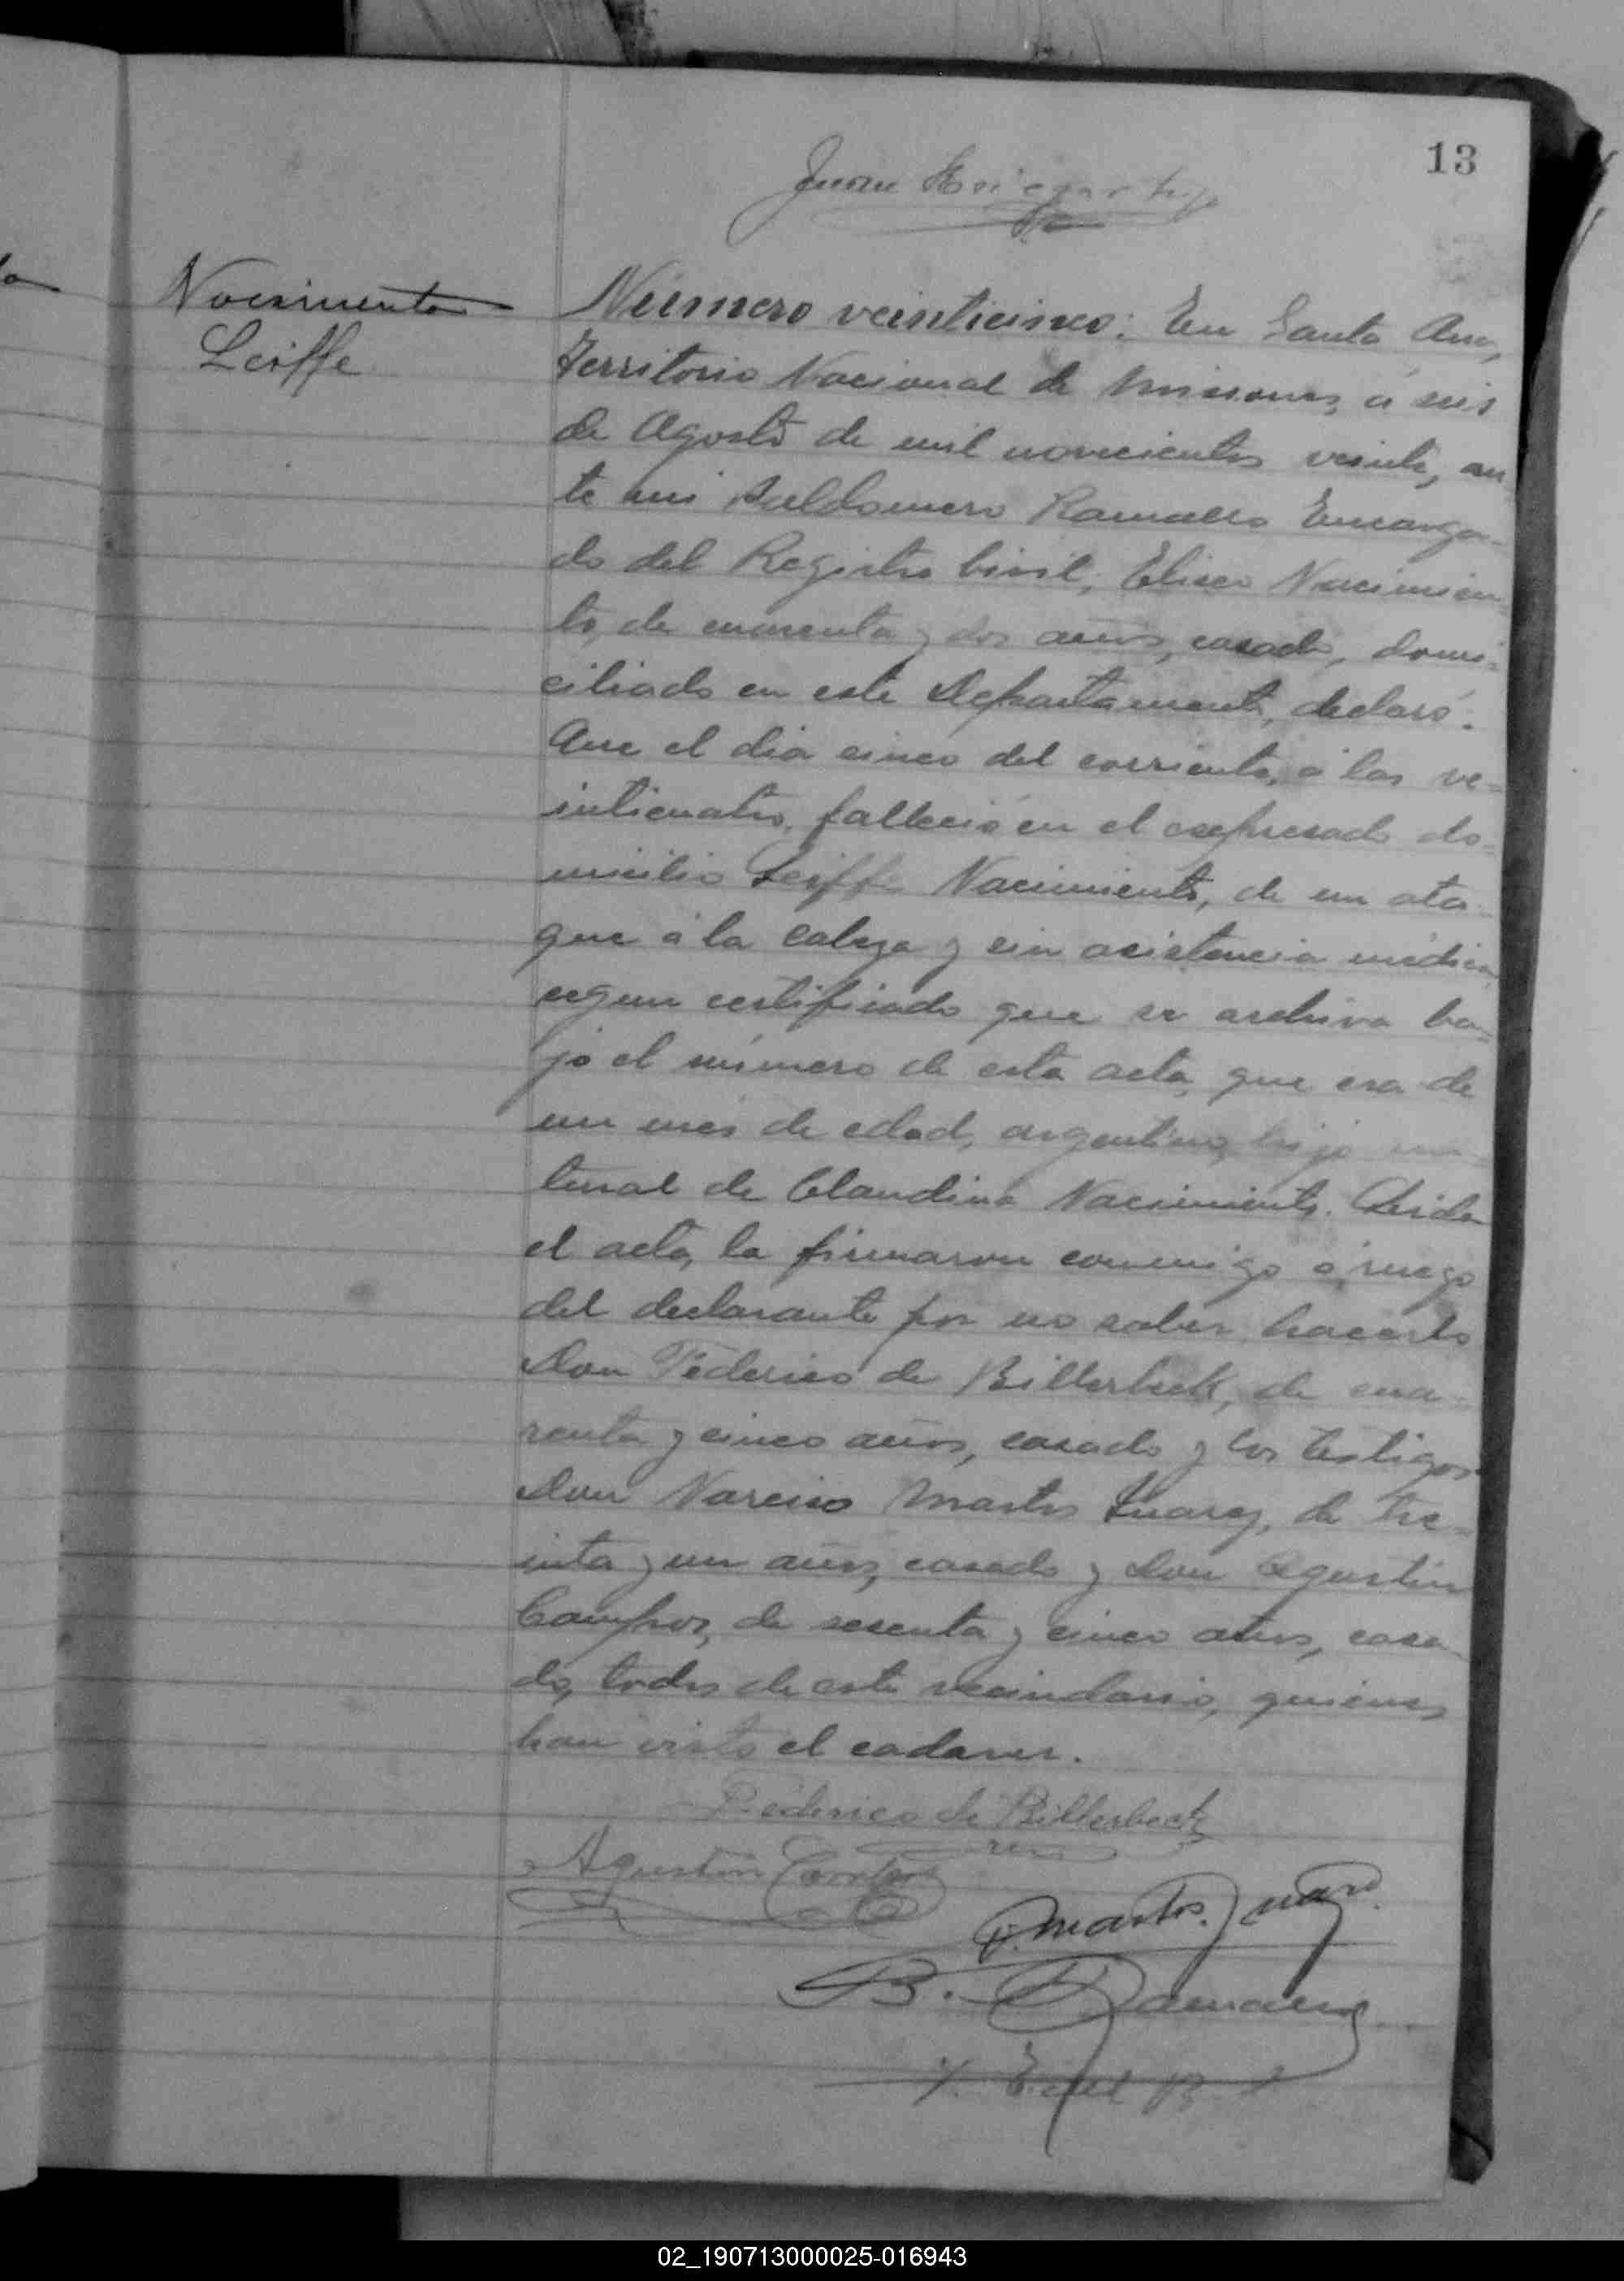 13
Juan
Nacimiento
Leiffe
Número veinticinco: En Santa Ana,
Territorio Nacional de Misiones, á seis
de Agosto de mil novecientos veinte, an
te mi Baldomero Ramallo Encarga-
do del Registro Civil, Eliseo Nacimien
to, de cuarenta y dos años, casado, domi-
ciliado en este Departamento, declaró:
Que el dia cinco del corriente, á las ve-
inticuatro, falleció en el expresado do-
micilio Leiffe Nacimiento, de un ata-
que á la cabeza y sin asistencia médica,
segun certificado que se archiva ba-
jo el número de esta acta, que era de
un mes de edad, argentino, hijo na-
tural de Claudina Nacimiento. Leida
el acta, la firmaron conmigo á ruego
del declarante por no saber hacerlo
Don Féderico de Billerbeck, de cua-
renta y cinco años, casado y los testigos
Don Narciso Martos Suarez, de tre-
inta y un años, casado y Don Agustin
Campos, de sesenta y cinco años, casa
do, todos de este vecindario, quienes
han visto el cadaver.
Féderico de Billerbeck
Agustin
Martos Suarez
B. Ramallo
02_190713000025-016943